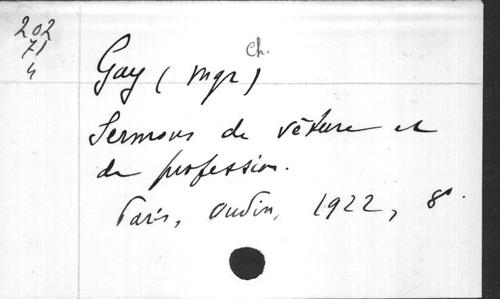 202
71
4
Ch.
Gay (Mgr)
Sermons de vêture et
de profession.
Paris, Oudin, 1922, 8°.